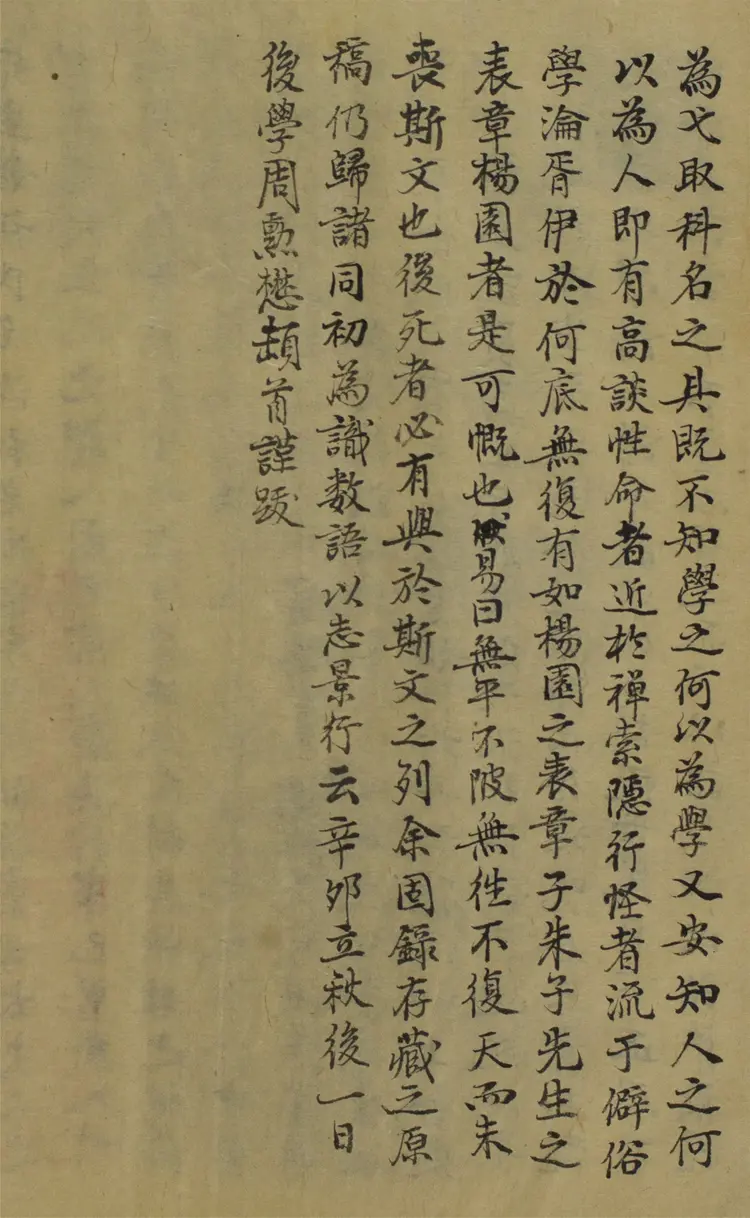 為弋取科名之具既不知學之何以為學又安知人之何
以為人即有高談性命者近於禅索隱行怪者流于僻俗
學淪胥伊於何底無復有如楊園之表章子朱子先生之
表章楊園者是可慨也易曰無平不陂無往不復天而未
喪斯文也後死者必有與於斯文之列余固錄存藏之原
稿仍歸諸同初為識数語以志景行云辛卯立秋後一日
後學周勳懋頓首謹跋